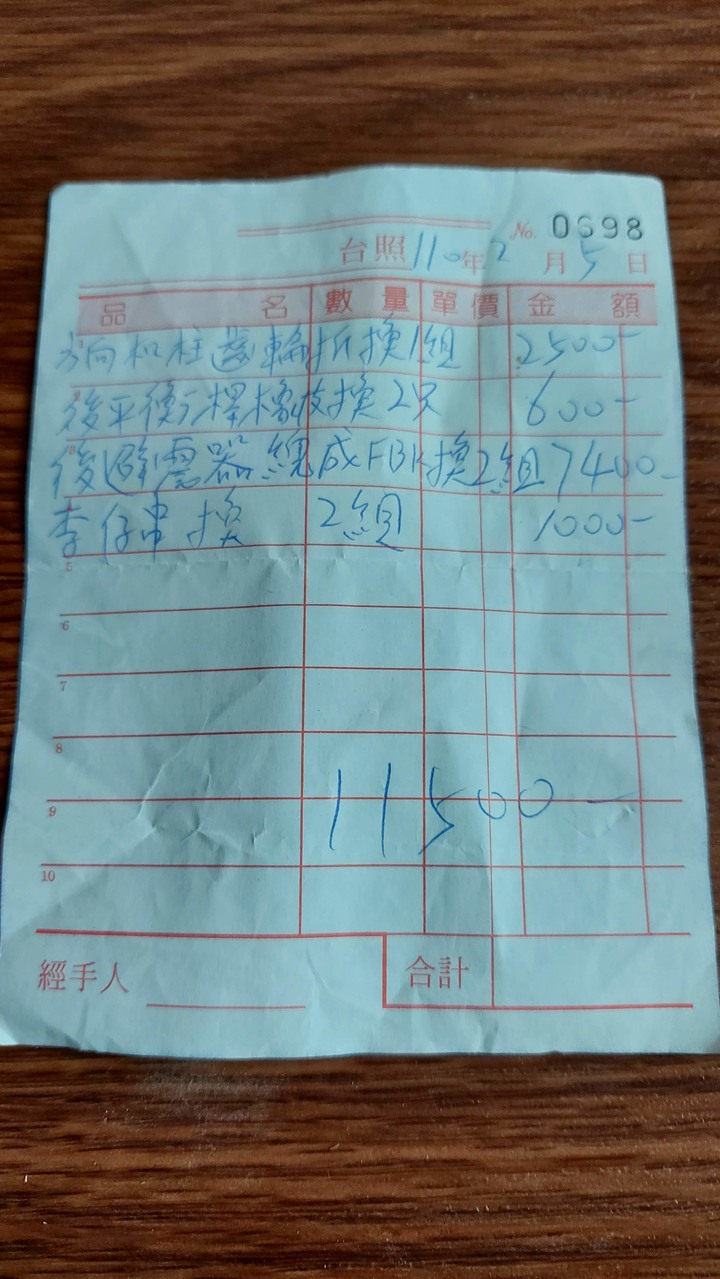 No. 0698
台照 110年2月5日
品名 數量 單價 金額
方向机柱齒輪拆換1組 2500-
後平衡桿橡皮換2只 600-
後避震器總成FBK換2組 7400-
李仔串換 2組 1000-
5
6
7
8
9 11500-
10
經手人 合計